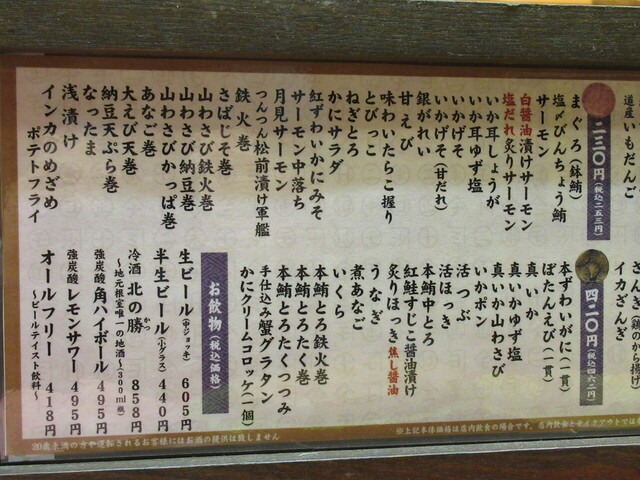 道産いもだんご
二三〇円(税込二五三円)
まぐろ(鉢鮪)
塩〆びんちょう鮪
サーモン
白醤油漬けサーモン
塩だれ炙りサーモン
いか耳しょうが
いか耳ゆず塩
いかげそ
いかげそ(甘だれ)
銀がれい
甘えび
味わいたらこ握り
とびっこ
ねぎとろ
かにサラダ
紅ずわいかにみそ
サーモン中落ち
月見サーモン
つんつん松前漬け軍艦
鉄火巻
さばじそ巻
山わさび鉄火巻
山わさび納豆巻
山わさびかっぱ巻
あなご巻
大えび天巻
納豆天ぷら巻
なったま
浅漬け
インカのめざめ
ポテトフライ
イカざんぎ
四二〇円(税込四六二円)
本ずわいがに(一貫)
ぼたんえび(一貫)
真いか
真いかゆず塩
真いか山わさび
いかポン
活つぶ
活ほっき
本鮪中とろ
紅鮭すじこ醤油漬け
炙りほっき焦し醤油
うなぎ
煮あなご
いくら
本鮪とろ鉄火巻
本鮪とろたく巻
本鮪とろたくつつみ
手仕込み蟹グラタン
かにクリームコロッケ(一個)
お飲物(税込価格)
生ビール(中ジョッキ) 605円
半生ビール(小グラス) 440円
冷酒 北の勝 858円
かつ
~地元根室唯一の地酒~(300ml瓶)
強炭酸 角ハイボール 495円
強炭酸 レモンサワー 495円
オールフリー 418円
~ビールテイスト飲料~
※上記本体価格は店内飲食の場合です。店内飲食とテイクアウトでは
20歳未満の方や運転されるお客様にはお酒の提供は致しません